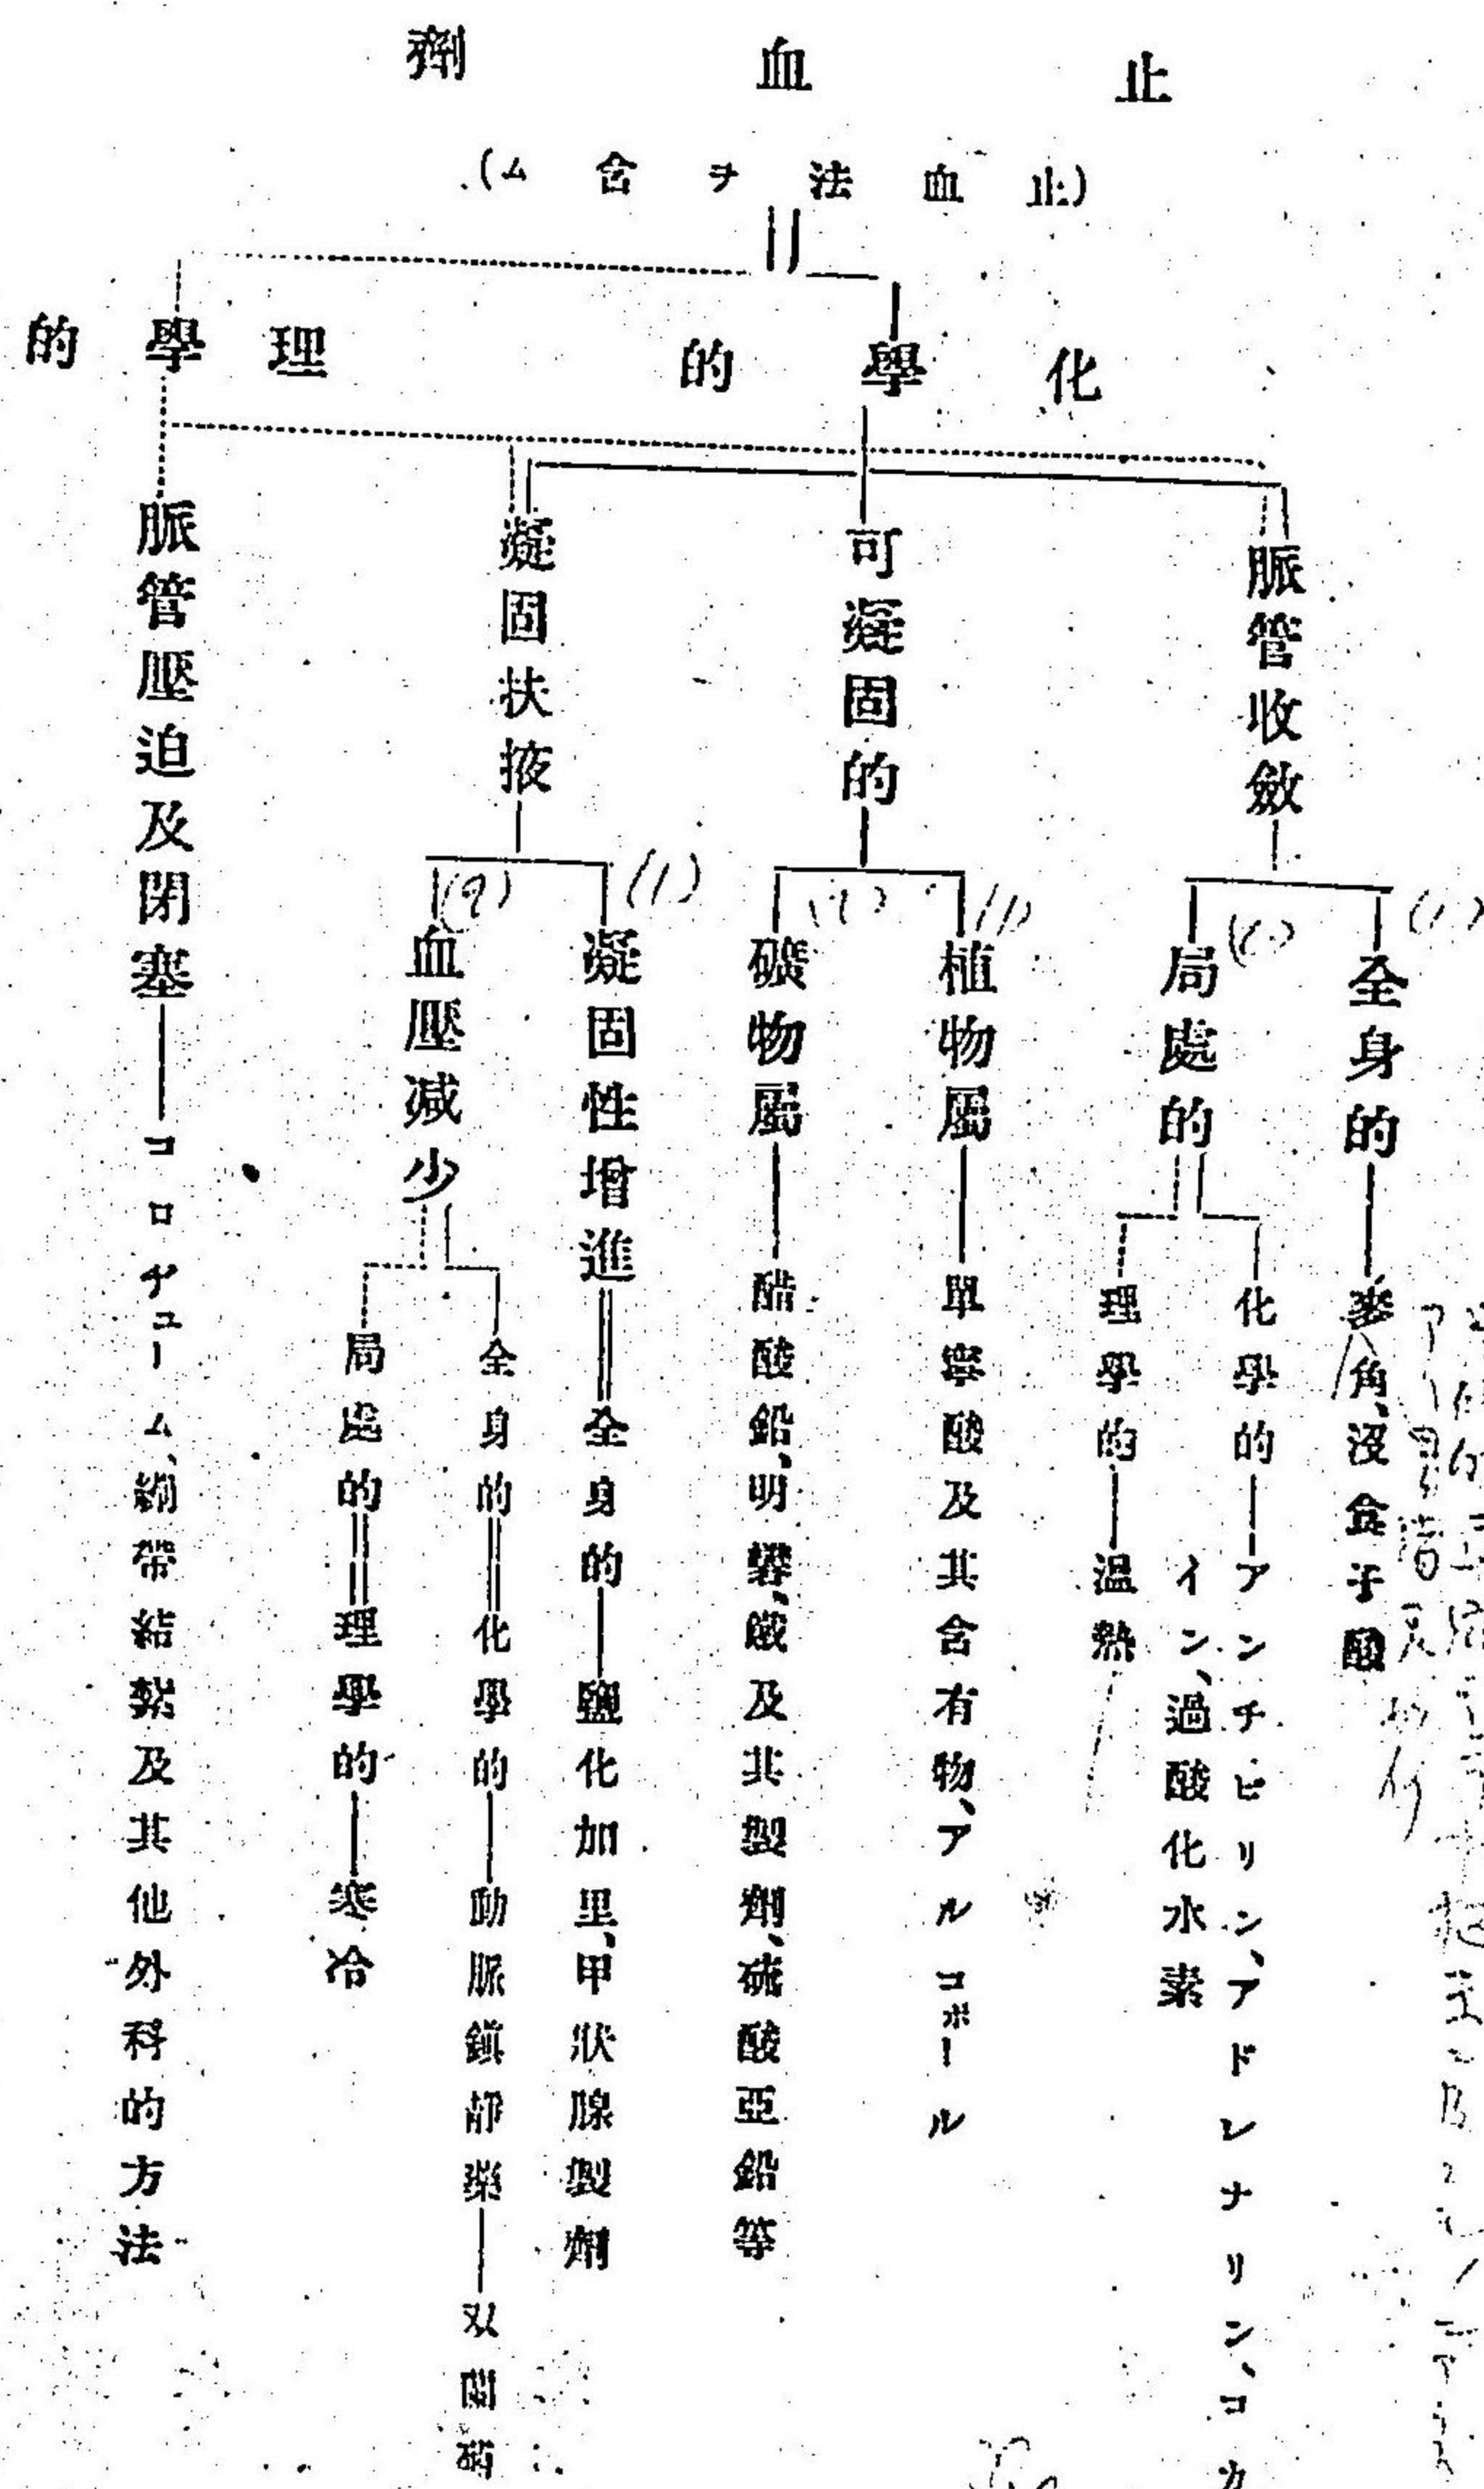 止血劑
(止血法ヲ含ム)
化學的
理學的
脈管收斂
(1)
全身的
麥角、沒食子酸
局處的
化學的
アンチピリン、アドレナリン、コカ
イン、過酸化水素
理學的
溫熱
可凝固的
植物屬
單寧酸及其含有物、アルコホール
礦物屬
醋酸鉛、明礬、鐵及其製劑、硫酸亞鉛等
凝固扶掖
(1)
凝固性增進
全身的
鹽化加里、甲狀腺製劑
血壓減少
全身的
化學的
動脈鎭靜藥
双蘭菊
局處的
理學的
寒冷
脈管壓迫及閉塞
コロヂューム、繃帶結紮及其他外科的方法